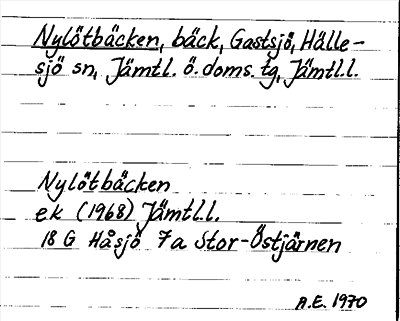 Nylötbäcken, bäck, Gastsjö, Hälle-
sjö sn, Jämtl. ö. doms. tg, Jämtl.l.
Nylötbäcken
ek (1968) Jämtl.l.
18 G Håsjö 7a Stor-Östjärnen
A.E. 1970